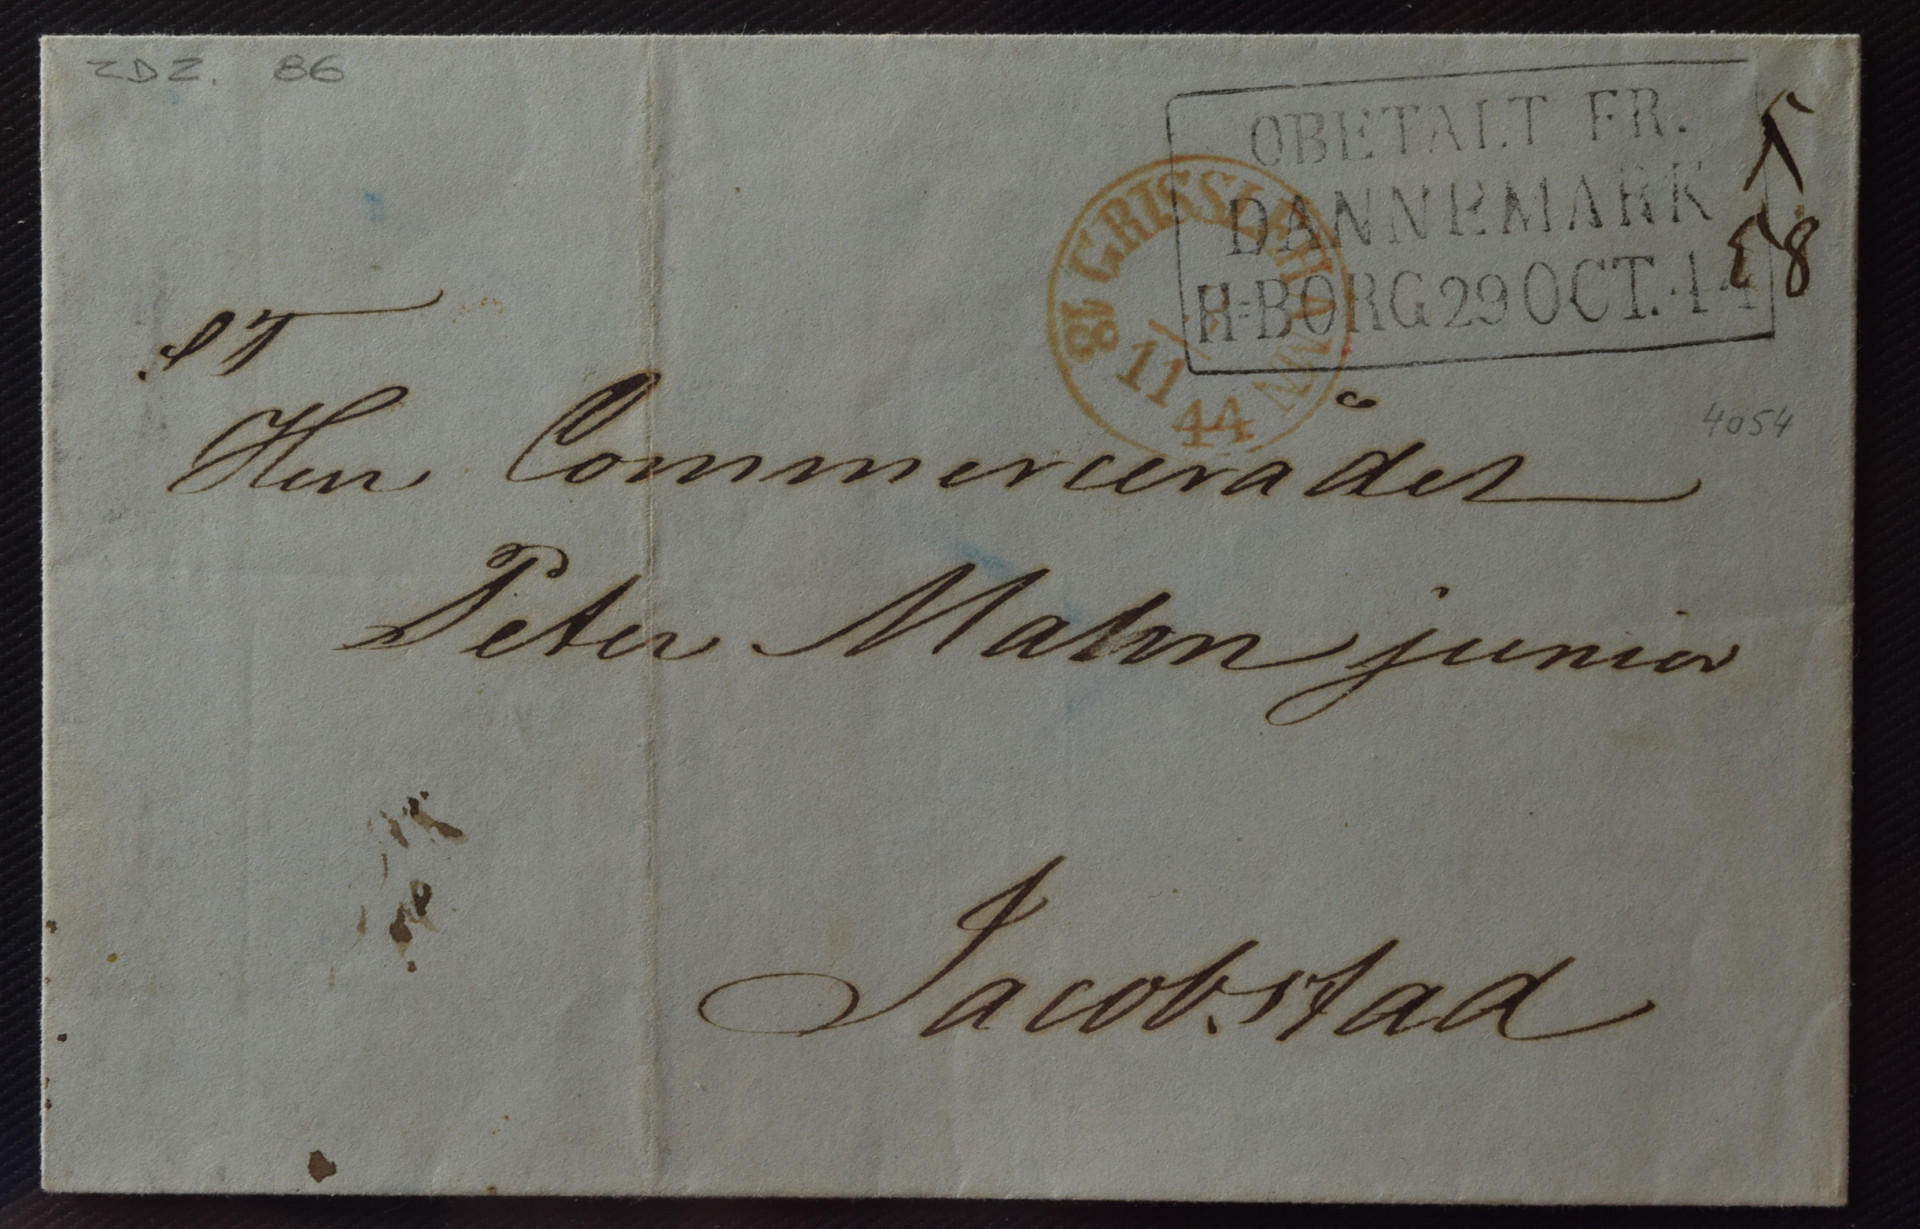 ZDZ. 86
OBETALT FR.
DANNEMARK
H=BORG 29 OCT. 44
GRISSLEHAMN
18 11 44
4054
ST
Herr Commerceråder
Peter Malm junior
Jacobstad